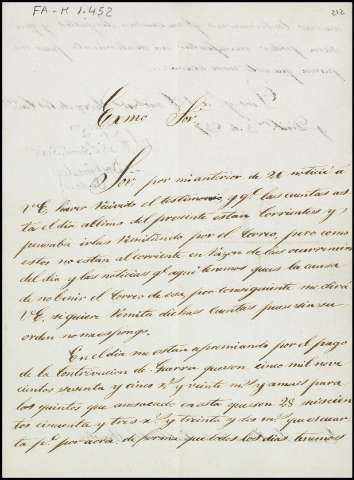 FA-M 1.452
212
Exmo Sor.
Sor. por mi anterior de 21 noticié á
V.E. haver recivido el testimonio y qe. las cuentas as
ta el dia ultimo del presente estan corrientes y
pensaba irlas remitiendo por el Correo, pero como
estos no estan al corriente en razon de las ocurrencias
del dia y las noticias qe. aqui tenemos que es la causa
de no benir el Correo de esa, por consiguiente me dirá
V.E. si quiere remita dichas Cuentas pues sin su
orden no me espongo.
En el dia me estan apremiando por el pago
de la Contrivucion de Guerra que son cinco mil nove
cientos sesenta y cinco rs. y veinte ms. y a mas para
los quintos que an sacado en esta que son 28 seiscien
tos cincuenta y tres rs. y treinta y un ms. que es cuar
ta pte. por aora. de forma que todos los dias tenemos